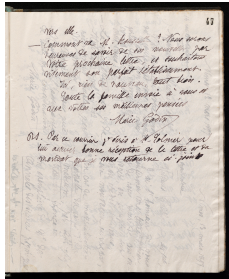 47
elle.
— Comment va M. ? Nous serons
heureuses de savoir de ses nouvelles par
votre prochaine lettre, et souhaitons
vivement son parfait rétablissement.
Ici, rien de nouveau, tout bien.
Toute la famille envoie à vous et
aux vôtres ses meilleures pensées
P.S. Par ce courrier j'écris à M. pour
lui accuser bonne réception de la lettre et du
que je vous retourne ci-joint